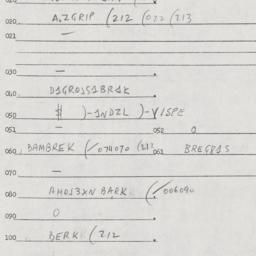 020 A.ZGRIP (212 (022 (213
021 —
030 —
040 D1GR0JS1BR1K
050 $ )-1NDZL )-VISPE
051 — 052 0
060 BAMBREK (/079070 (212 061 BREGP1S
070 —
080 AHOJ3XN BARK (/006090
090 0
100 BERK (212